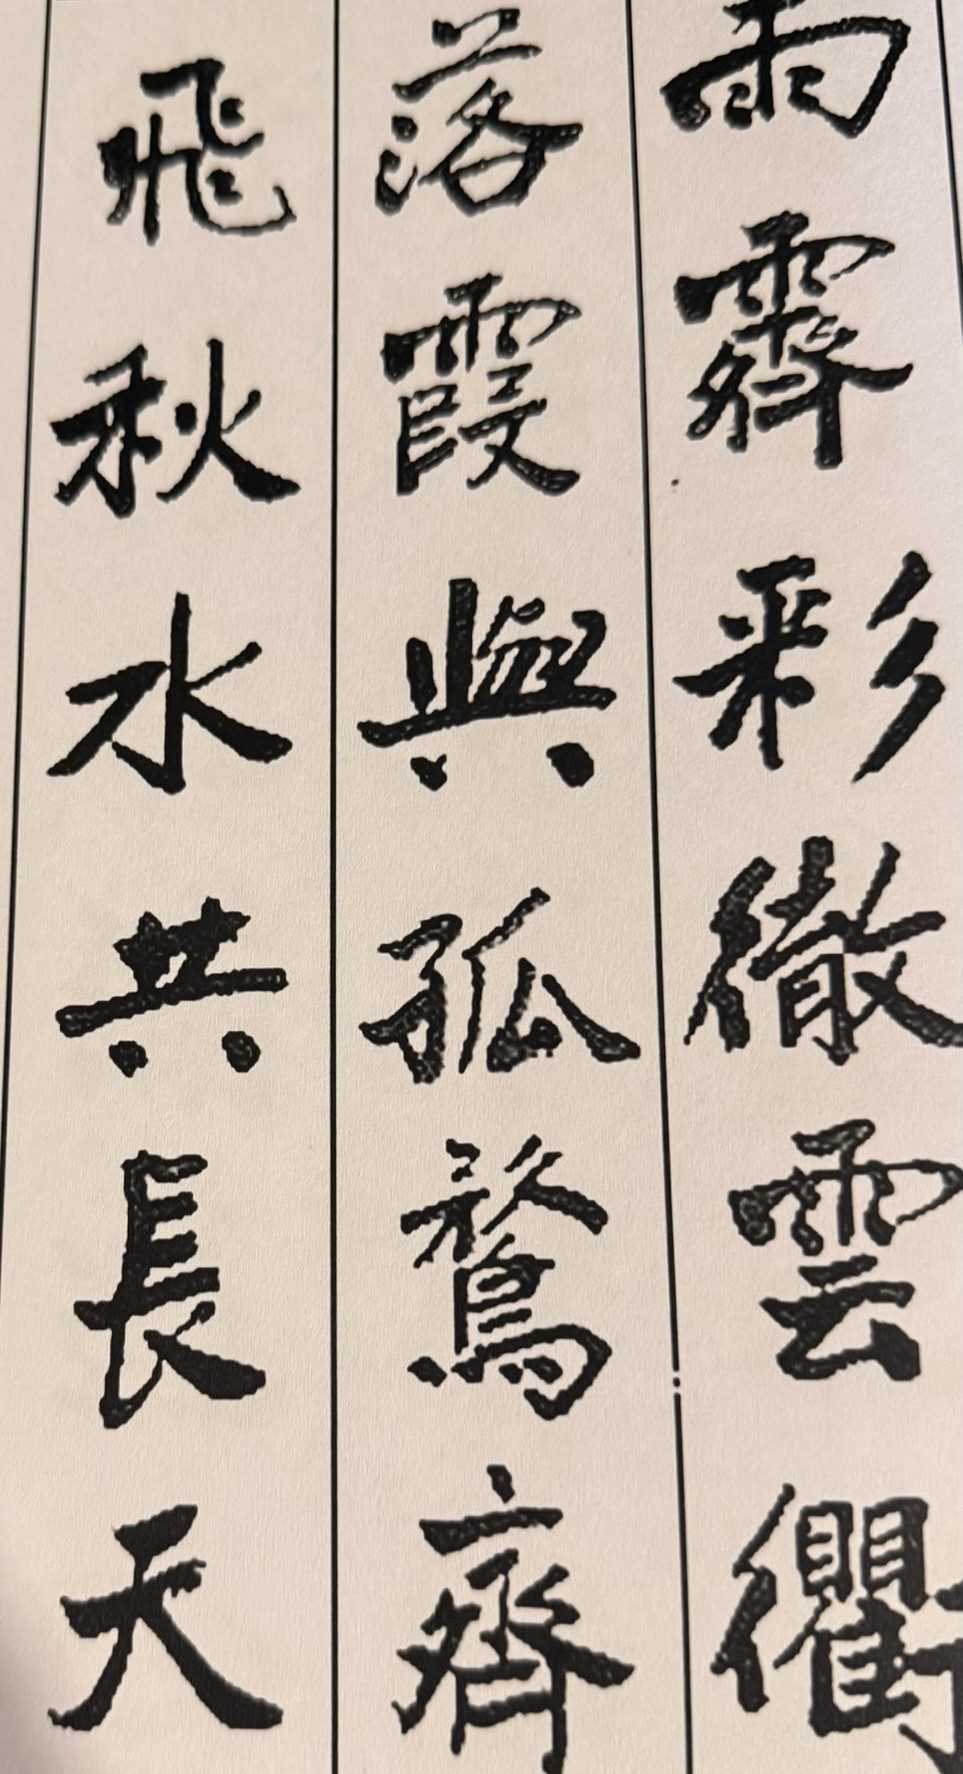 雨霽彩徹雲衢
落霞與孤鶩齊
飛秋水共長天